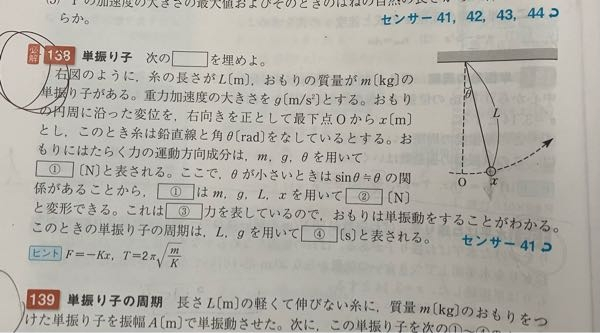 の加速度の最大値およびそのときのばねの自然の長さか
らか。
センサー 41, 42, 43, 44
必解 138 単振り子 次の□を埋めよ。
右図のように,糸の長さがL〔m〕,おもりの質量がm〔kg〕の
単振り子がある。重力加速度の大きさをg〔m/s²〕とする。おもり
の円周に沿った変位を,右向きを正として最下点Oからx〔m〕
とし,このとき糸は鉛直線と角θ〔rad〕をなしているとする。お
もりにはたらく力の運動方向成分は,m, g, θを用いて
①〔N〕と表される。ここで,θが小さいときはsinθ≒θの関
係があることから,①はm, g, L, xを用いて②〔N〕
と変形できる。これは③力を表しているので,おもりは単振動をすることがわかる。
このときの単振り子の周期は,L, gを用いて④〔s〕と表される。
センサー 41
ヒント F=-Kx, T=2π√(m/K)
θ
L
O
x
139 単振り子の周期 長さL〔m〕の軽くて伸びない糸に,質量m〔kg〕のおもりをつ
けた単振り子を振幅A〔m〕で単振動させた。次に,この単振り子を次の①〜